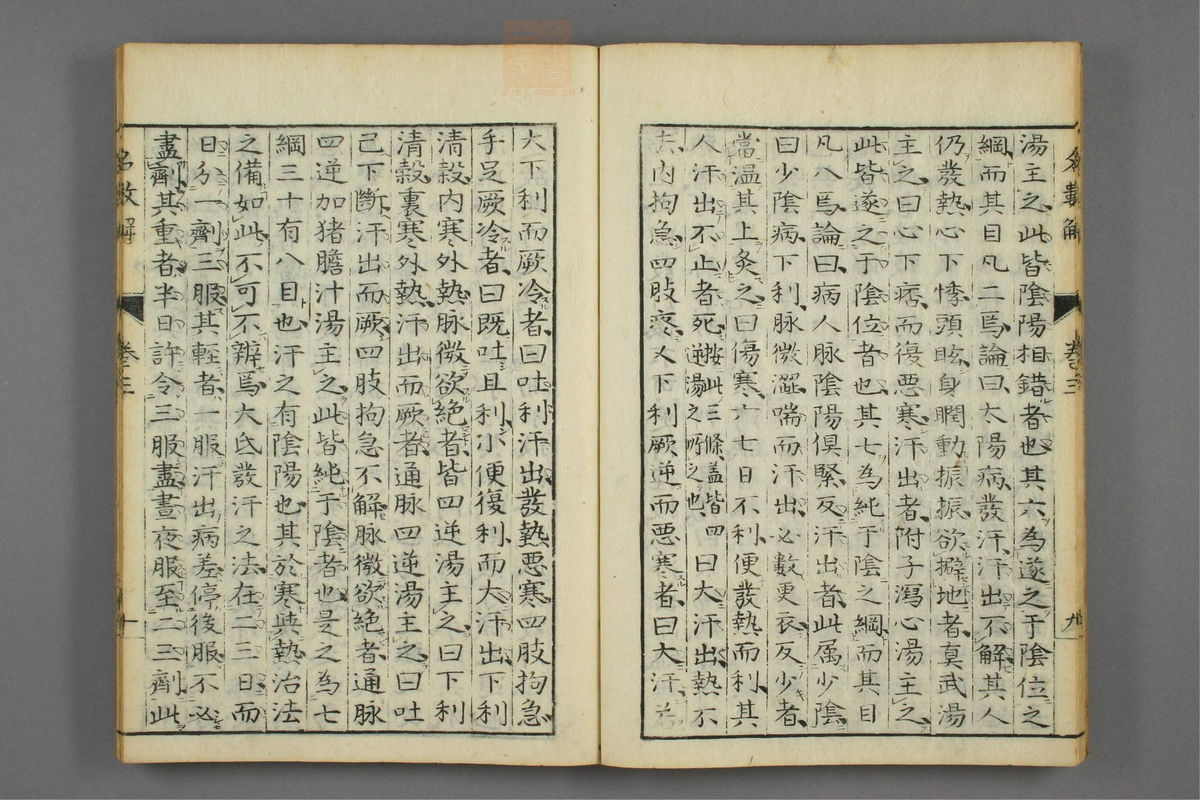 湯主之此皆陰陽相錯者也其六為遂之于陰位之
綱而其目凡二焉論曰太陽病發汗汗出不解其人
仍發熱心下悸頭眩身瞤動振振欲擗地者真武湯
主之曰心下痞而復惡寒汗出者附子瀉心湯主之
此皆遂之于陰位者也其七為純于陰之綱而其目
凡八焉論曰病人脉陰陽俱緊反汗出者此属少陰
曰少陰病下利脉微澀喘而汗出必數更衣反少者
當温其上灸之曰傷寒六七日不利便發熱而利其
人汗出不止者死按此三條蓋皆四逆湯之所之也曰大汗出熱不
去内拘急四肢疼又下利厥逆而惡寒者曰大汗若
大下利而厥冷者曰吐利汗出發熱惡寒四肢拘急
手足厥冷者曰既吐且利小便復利而大汗出下利
清穀内寒外熱脉微欲絶者皆四逆湯主之曰下利
清穀裏寒外熱汗出而厥者通脉四逆湯主之曰吐
已下斷汗出而厥四肢拘急不解脉微欲絶者通脉
四逆加猪膽汁湯主之此皆純于陰者也是之為七
綱三十有八目也汗之有陰陽也其於寒與熱治法
之備如此不可不辨焉大氐發汗之法在二三日而
日分一劑三服其輕者一服汗出病差停後服不必
盡劑其重者半日許令三服盡晝夜服至二三劑此
名數解
卷三
九
名數解
卷三
十